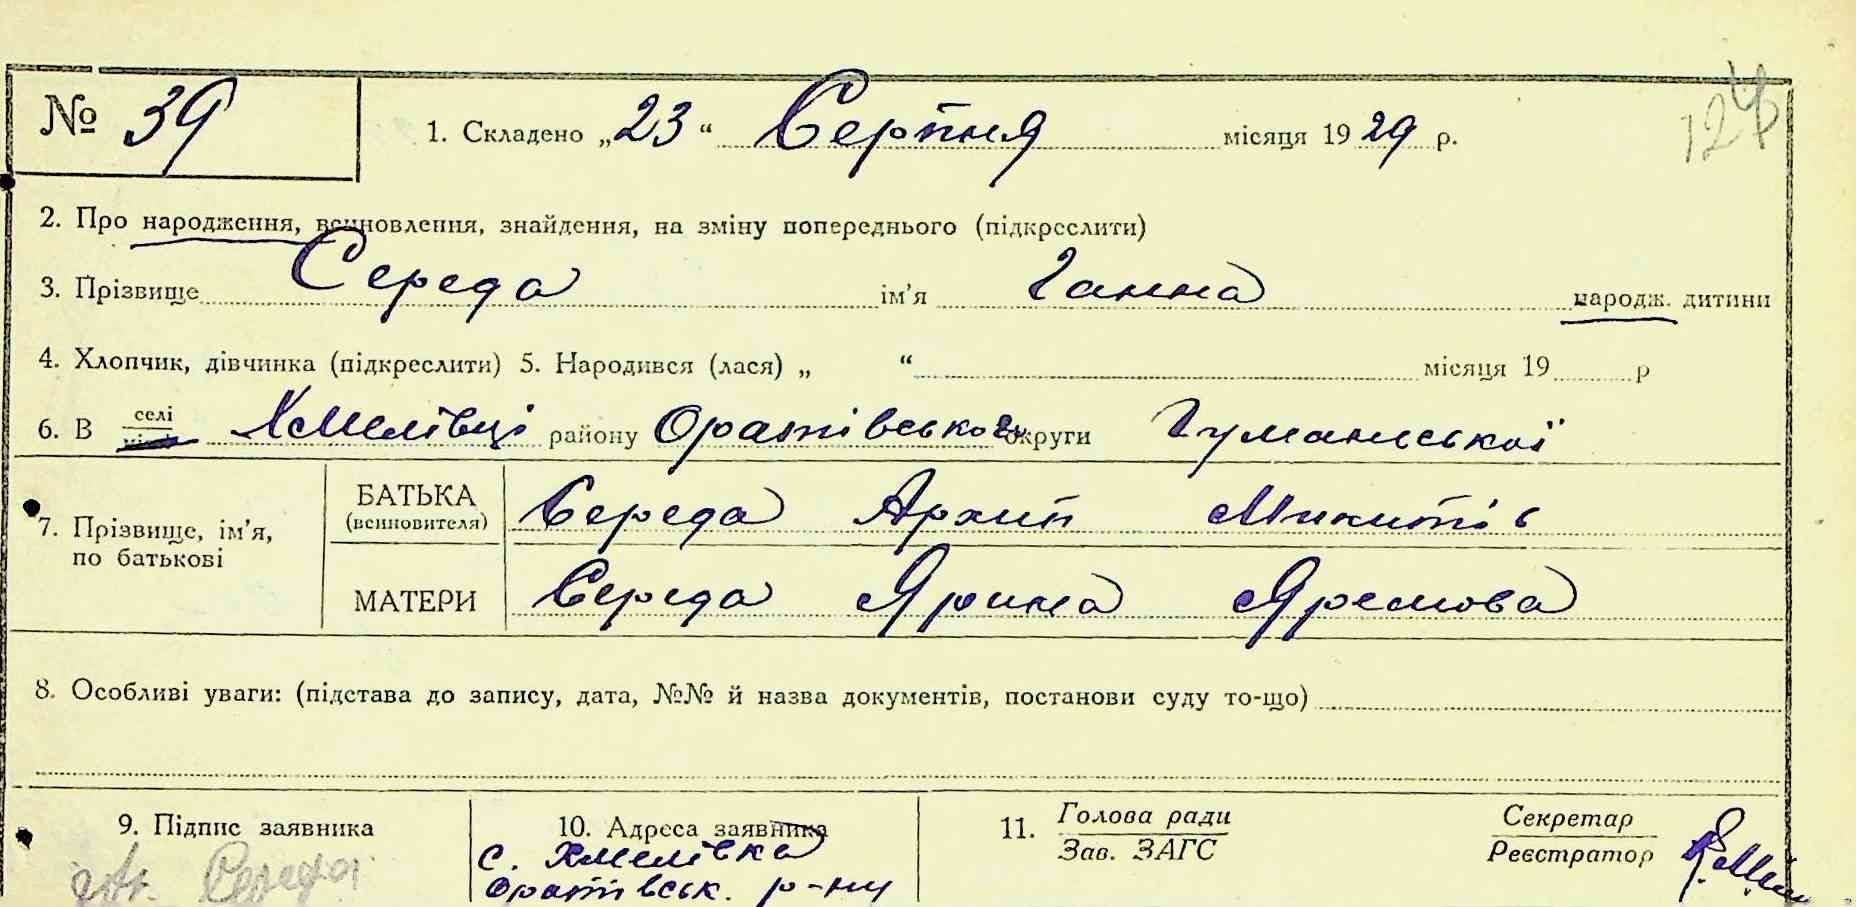 № 39
1. Складено „23“ Серпня місяця 1929 р.
124
2. Про народження, всиновлення, знайдення, на зміну попереднього (підкреслити)
3. Прізвище Середа ім’я Ганна народж. дитини
4. Хлопчик, дівчинка (підкреслити) 5. Народився (лася) „ “ місяця 19 р
6. В селі Хмелівці району Оратівського округи Гуманської
7. Прізвище, ім’я, по батькові
БАТЬКА (всиновителя) Середа Архип Микитів
МАТЕРИ Середа Ярина Яремова
8. Особливі уваги: (підстава до запису, дата, №№ й назва документів, постанови суду то-що)
9. Підпис заявника
Середа
10. Адреса заявника
с. Хмелівка
Оратівськ. р-ну
11. Голова ради
Зав. ЗАГС
Секретар
Реєстратор